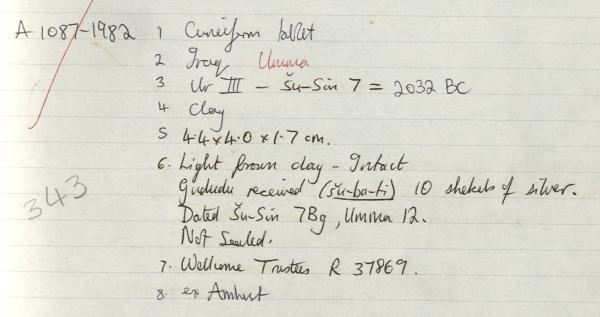 A 1087-1982 1 Cuneiform tablet
2 Iraq Umma
3 Ur III - Šu-Sin 7 = 2032 BC
4 Clay
5 4.4 x 4.0 x 1.7 cm.
6. Light brown clay - Intact
Gududu received (šu-ba-ti) 10 shekels of silver.
Dated Šu-Sin 7Bg, Umma 12.
Not Sealed.
343
7. Wellcome Trustees R 37869.
8. ex Amherst